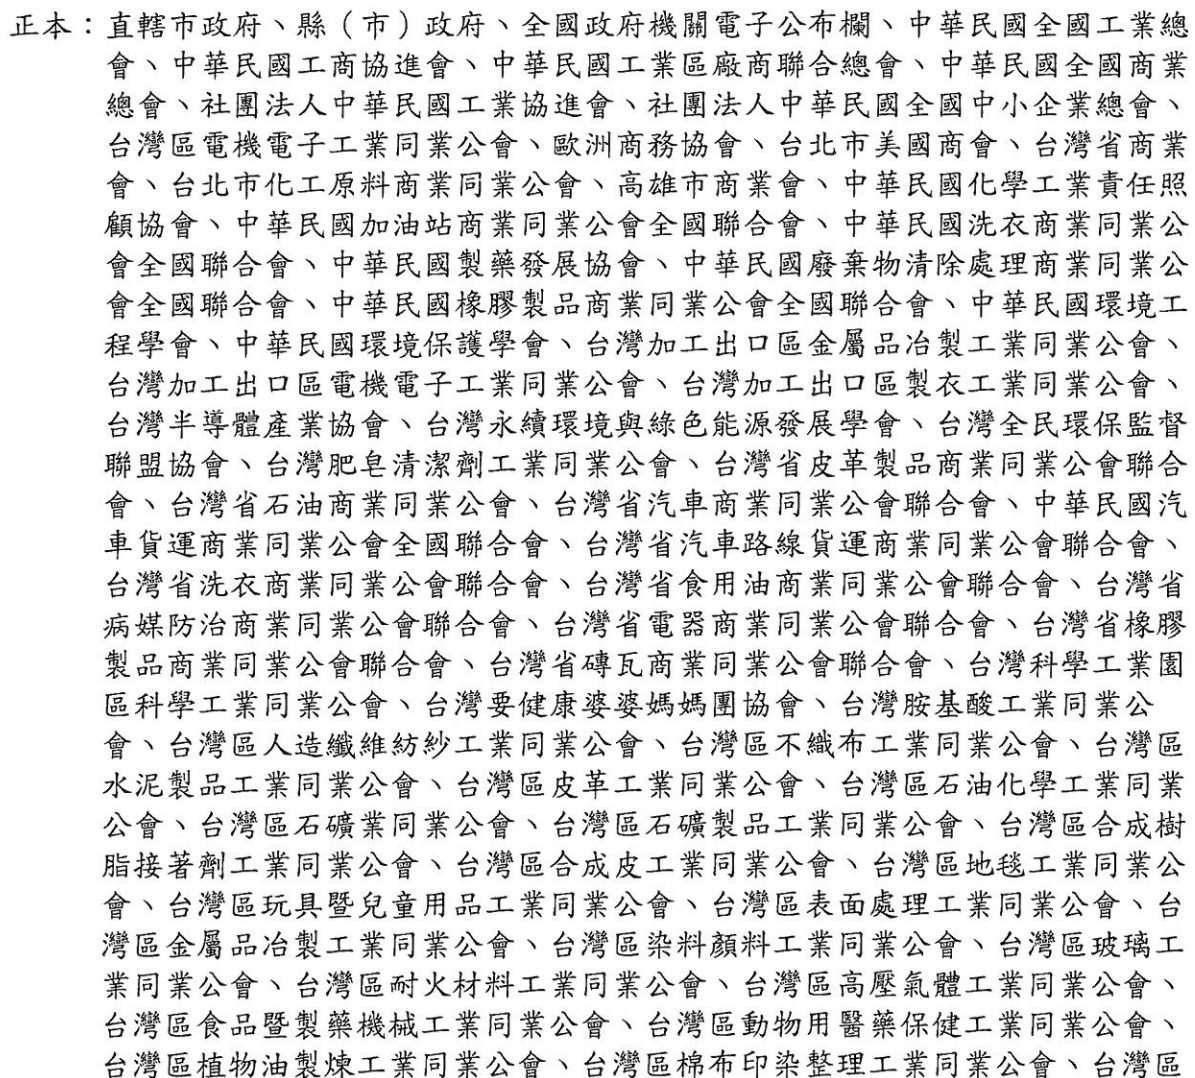 正本：直轄市政府、縣（市）政府、全國政府機關電子公布欄、中華民國全國工業總
會、中華民國工商協進會、中華民國工業區廠商聯合總會、中華民國全國商業
總會、社團法人中華民國工業協進會、社團法人中華民國全國中小企業總會、
台灣區電機電子工業同業公會、歐洲商務協會、台北市美國商會、台灣省商業
會、台北市化工原料商業同業公會、高雄市商業會、中華民國化學工業責任照
顧協會、中華民國加油站商業同業公會全國聯合會、中華民國洗衣商業同業公
會全國聯合會、中華民國製藥發展協會、中華民國廢棄物清除處理商業同業公
會全國聯合會、中華民國橡膠製品商業同業公會全國聯合會、中華民國環境工
程學會、中華民國環境保護學會、台灣加工出口區金屬品冶製工業同業公會、
台灣加工出口區電機電子工業同業公會、台灣加工出口區製衣工業同業公會、
台灣半導體產業協會、台灣永續環境與綠色能源發展學會、台灣全民環保監督
聯盟協會、台灣肥皂清潔劑工業同業公會、台灣省皮革製品商業同業公會聯合
會、台灣省石油商業同業公會、台灣省汽車商業同業公會聯合會、中華民國汽
車貨運商業同業公會全國聯合會、台灣省汽車路線貨運商業同業公會聯合會、
台灣省洗衣商業同業公會聯合會、台灣省食用油商業同業公會聯合會、台灣省
病媒防治商業同業公會聯合會、台灣省電器商業同業公會聯合會、台灣省橡膠
製品商業同業公會聯合會、台灣省磚瓦商業同業公會聯合會、台灣科學工業園
區科學工業同業公會、台灣要健康婆婆媽媽團協會、台灣胺基酸工業同業公
會、台灣區人造纖維紡紗工業同業公會、台灣區不織布工業同業公會、台灣區
水泥製品工業同業公會、台灣區皮革工業同業公會、台灣區石油化學工業同業
公會、台灣區石礦業同業公會、台灣區石礦製品工業同業公會、台灣區合成樹
脂接著劑工業同業公會、台灣區合成皮工業同業公會、台灣區地毯工業同業公
會、台灣區玩具暨兒童用品工業同業公會、台灣區表面處理工業同業公會、台
灣區金屬品冶製工業同業公會、台灣區染料顏料工業同業公會、台灣區玻璃工
業同業公會、台灣區耐火材料工業同業公會、台灣區高壓氣體工業同業公會、
台灣區食品暨製藥機械工業同業公會、台灣區動物用醫藥保健工業同業公會、
台灣區植物油製煉工業同業公會、台灣區棉布印染整理工業同業公會、台灣區